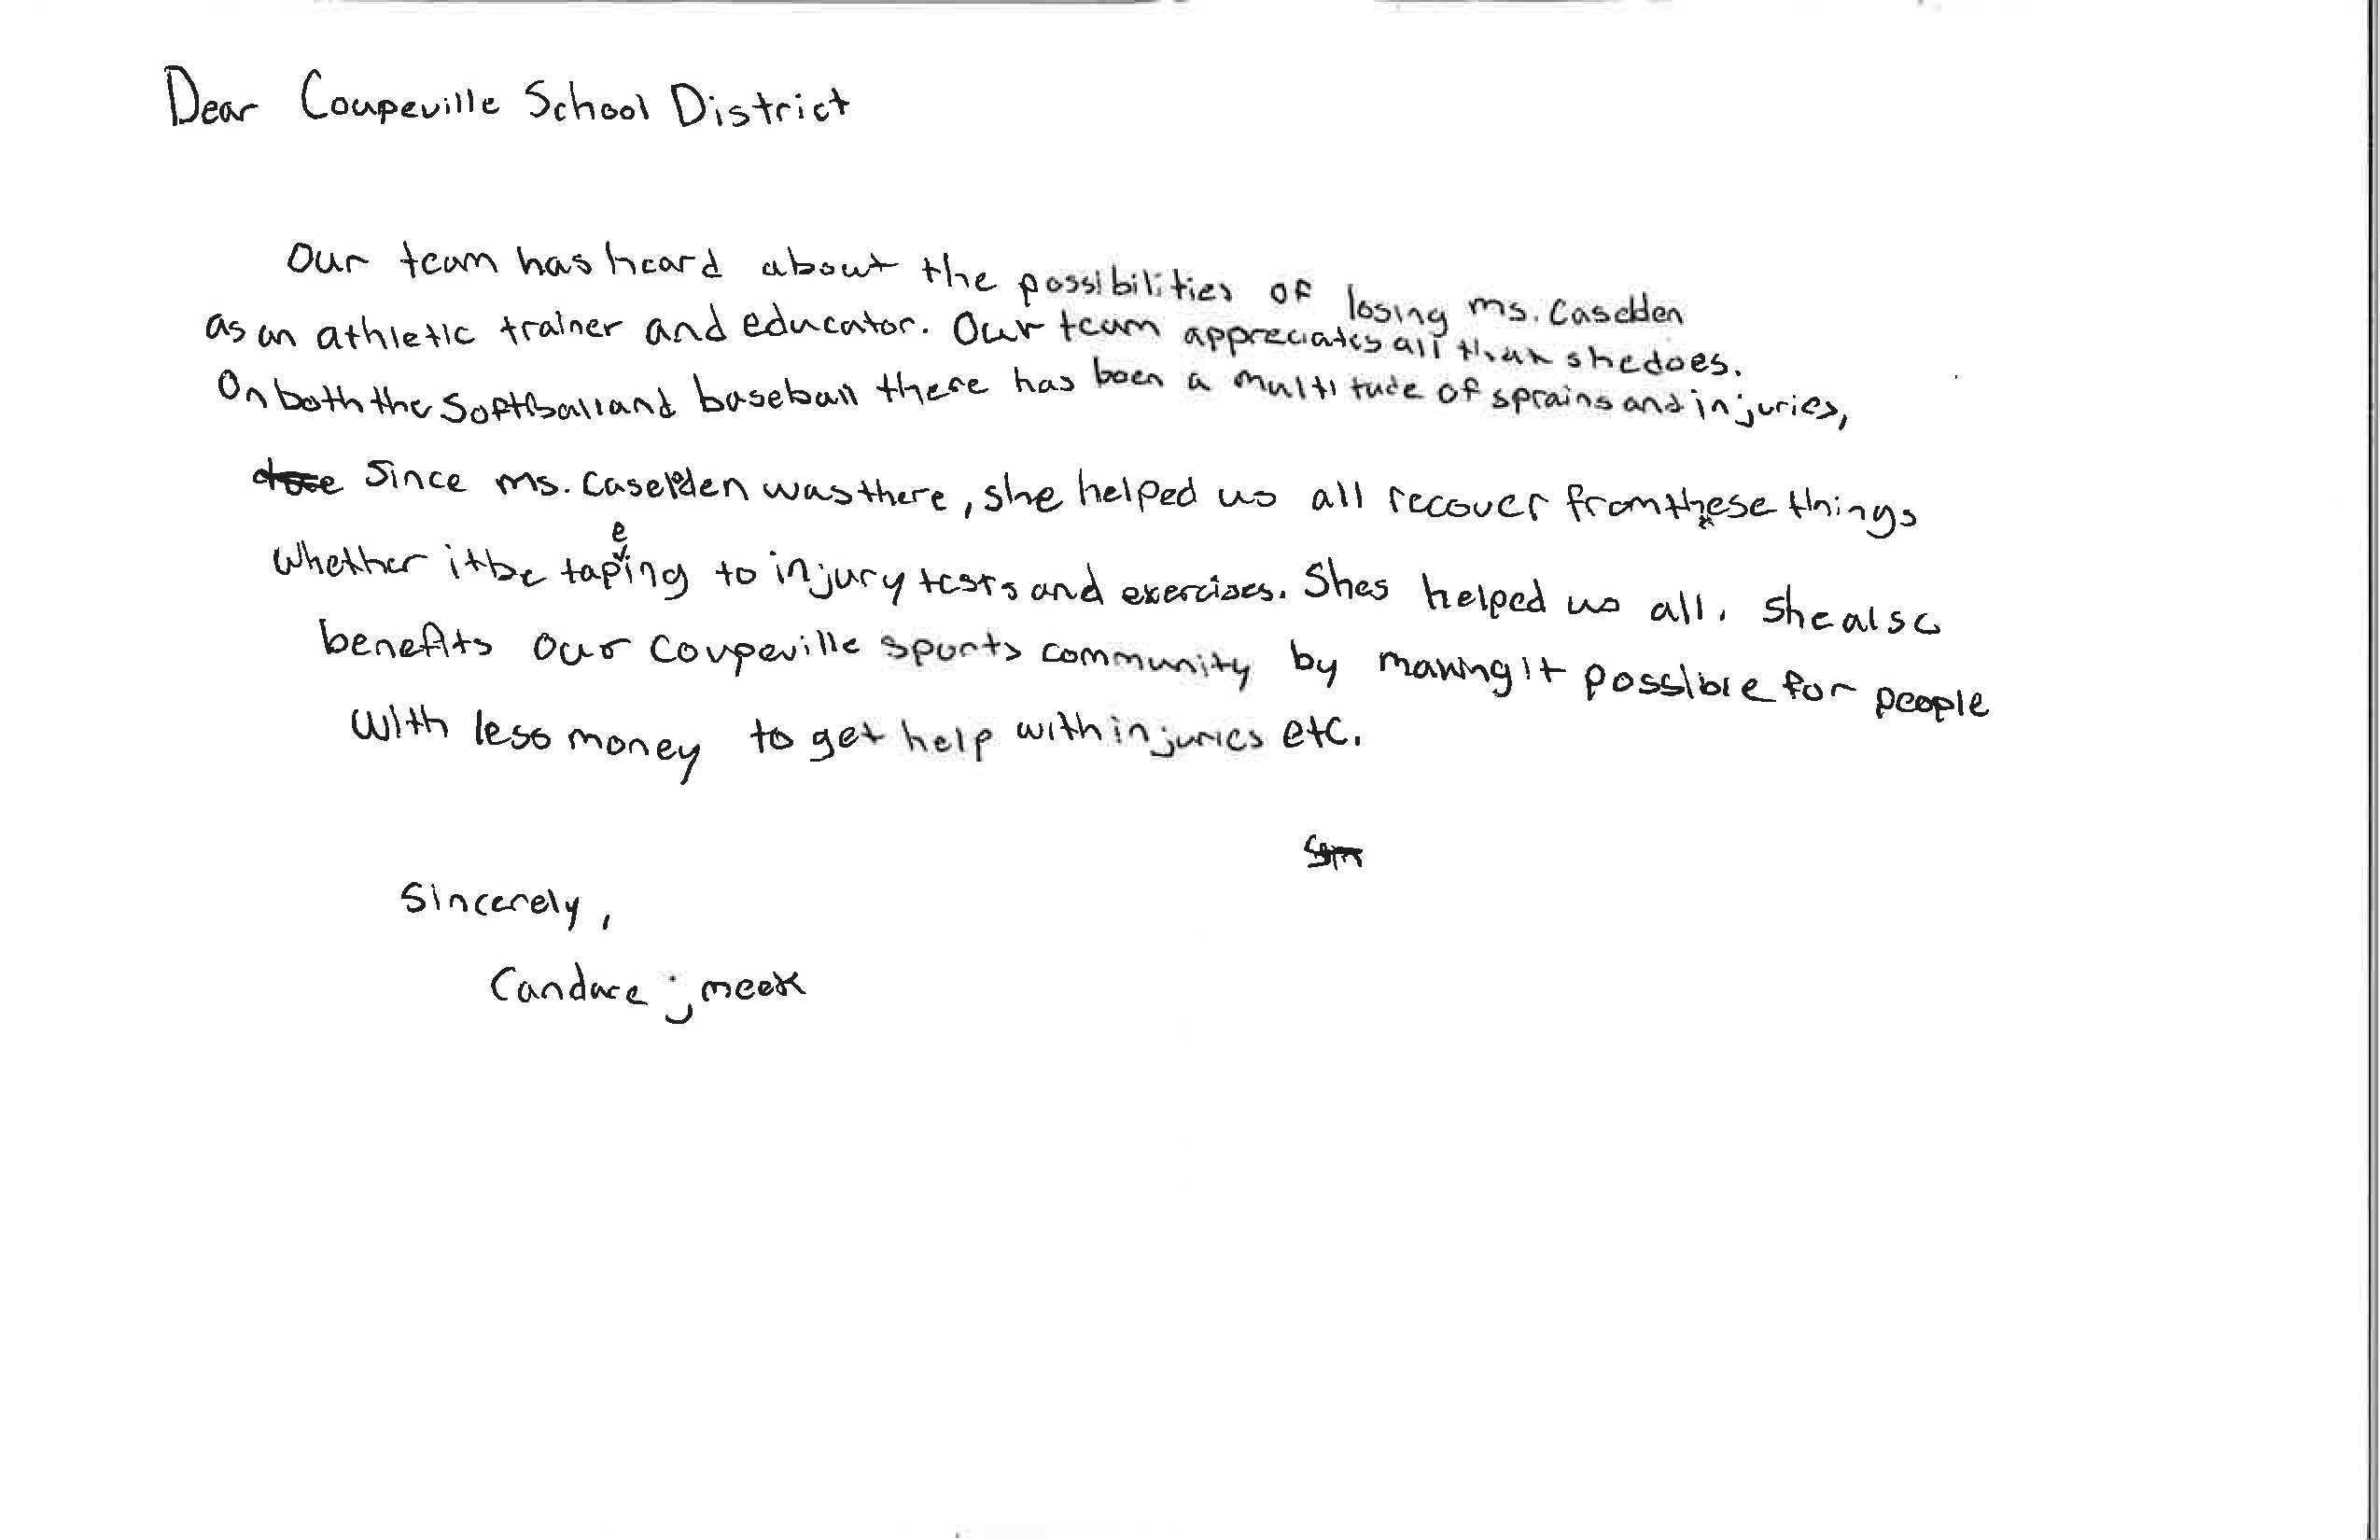 Dear Coupeville School District
Our team has heard about the possibilities of losing ms. Caselden
as an athletic trainer and educator. Our team appreciates all that she does.
On both the Softball and baseball there has been a multitude of sprains and injuries,
since ms. Caselden was there, she helped us all recover from these things
whether it be tapeing to injury tests and exercises. Shes helped us all. She also
benefits our Coupeville sports community by making it possible for people
with less money to get help with injuries etc.
Sincerely,
Candace j meek